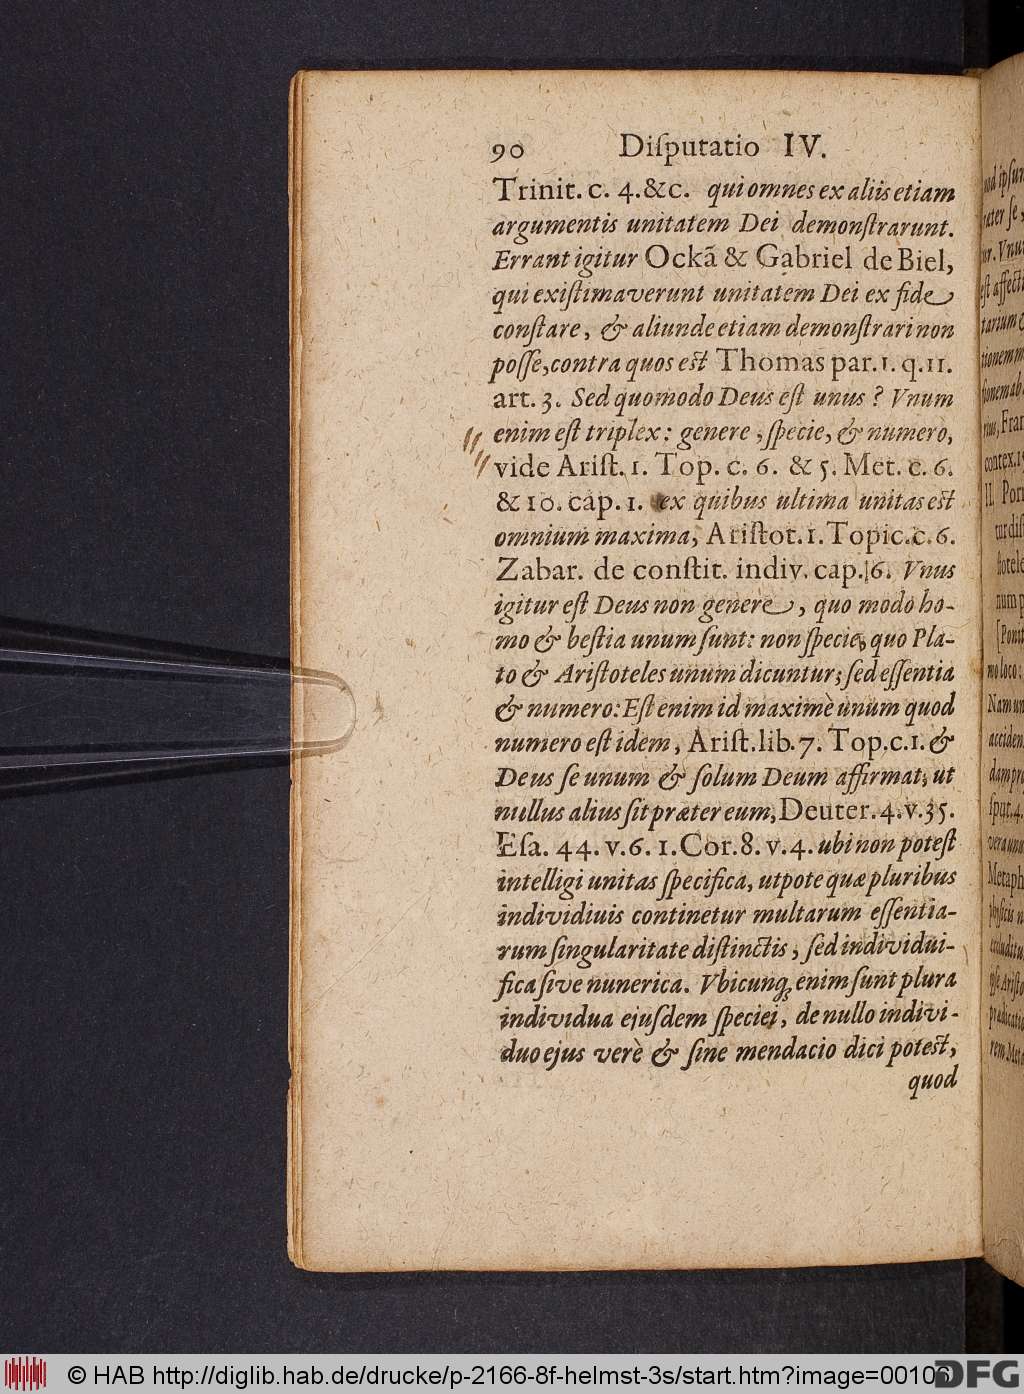 90 Diſputatio IV.
Trinit. c. 4. &c. qui omnes ex aliis etiam
argumentis unitatem Dei demonſtrarunt.
Errant igitur Ockã & Gabriel de Biel,
qui exiſtimaverunt unitatem Dei ex fide
conſtare, & aliunde etiam demonſtrari non
poſſe, contra quos eſt Thomas par. 1. q. 11.
art. 3. Sed quomodo Deus eſt unus? Vnum
enim eſt triplex: genere, ſpecie, & numero,
vide Ariſt. 1. Top. c. 6. & 5. Met. c. 6.
& 10. cap. 1. ex quibus ultima unitas eſt
omnium maxima, Ariſtot. 1. Topic. c. 6.
Zabar. de conſtit. indiv. cap. 6. Vnus
igitur eſt Deus non genere, quo modo ho-
mo & beſtia unum ſunt: non ſpecie, quo Pla-
to & Ariſtoteles unum dicuntur; ſed eſſentia
& numero: Eſt enim id maximè unum quod
numero eſt idem, Ariſt. lib. 7. Top. c. 1. &
Deus ſe unum & ſolum Deum affirmat, ut
nullus alius ſit præter eum, Deuter. 4. v. 35.
Eſa. 44. v. 6. 1. Cor. 8. v. 4. ubi non poteſt
intelligi unitas ſpecifica, utpote quæ pluribus
individiuis continetur multarum eſſentia-
rum ſingularitate diſtinctis, ſed individui-
fica ſive nunerica. Vbicunq; enim ſunt plura
individua ejuſdem ſpeciei, de nullo indivi-
duo ejus verè & ſine mendacio dici poteſt,
quod
© HAB http://diglib.hab.de/drucke/p-2166-8f-helmst-3s/start.htm?image=00106
DFG